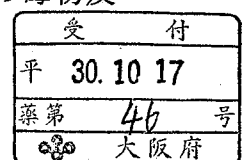 受 付
平 30.10 17
薬第 46 号
大阪府